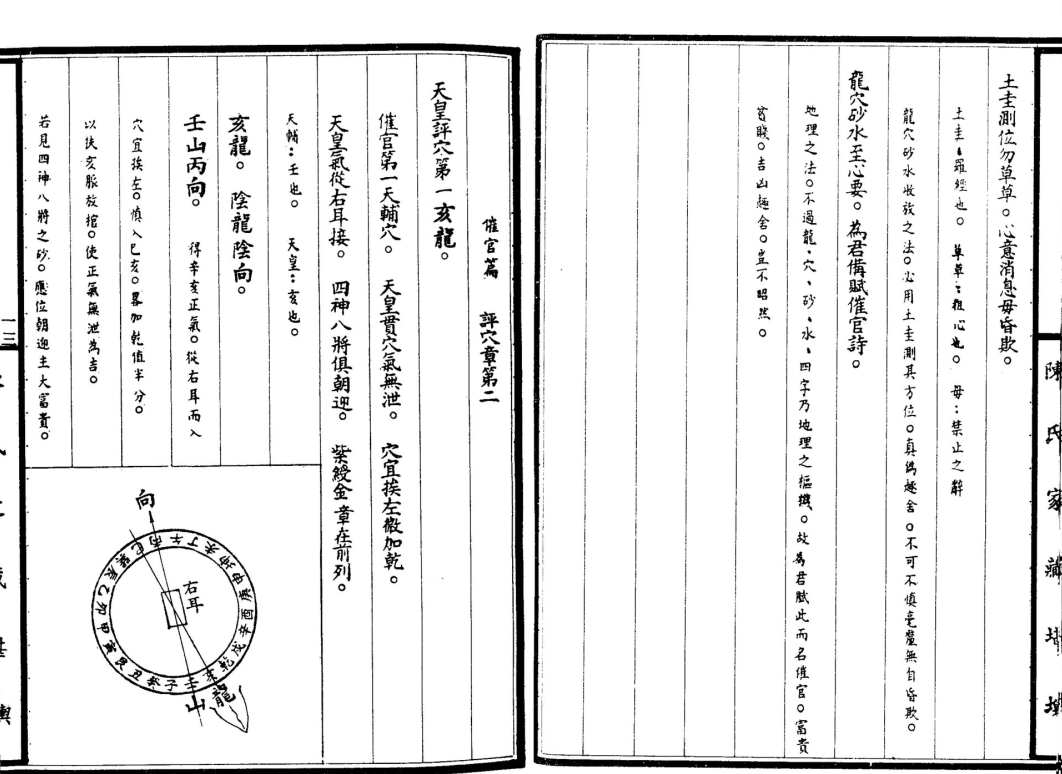 土圭測位勿草草。心意消息毋昏欺。
土圭:羅經也。 草草:粗心也。 毋:禁止之辭
龍穴砂水收放之法。必用土圭測其方位。真偽趨舍。不可不慎毫釐無自昏欺。
龍穴砂水至心要。為君備賦催官詩。
地理之法。不過龍、穴、砂、水、四字乃地理之樞機。故為君賦此而名催官。富貴
貧賤。吉凶趨舍。豈不昭然。
陳氏家藏堪輿
催官篇 評穴章第二
天皇評穴第一亥龍。
催官第一天輔穴。 天皇貫穴氣無泄。 穴宜挨左微加乾。
天皇氣從右耳接。 四神八將俱朝迎。 紫綬金章在前列。
天輔:壬也。 天皇:亥也。
亥龍。 陰龍陰向。
壬山丙向。 得辛亥正氣。從右耳而入
穴宜挨左。慎入巳亥。畧加乾值半分。
以扶亥脈放棺。使正氣無泄為吉。
若見四神八將之砂。應位朝迎主大富貴。
向
右耳
丙午丁未坤申庚酉辛戌乾亥壬子癸丑艮寅甲卯乙辰巽巳
龍
山
一三